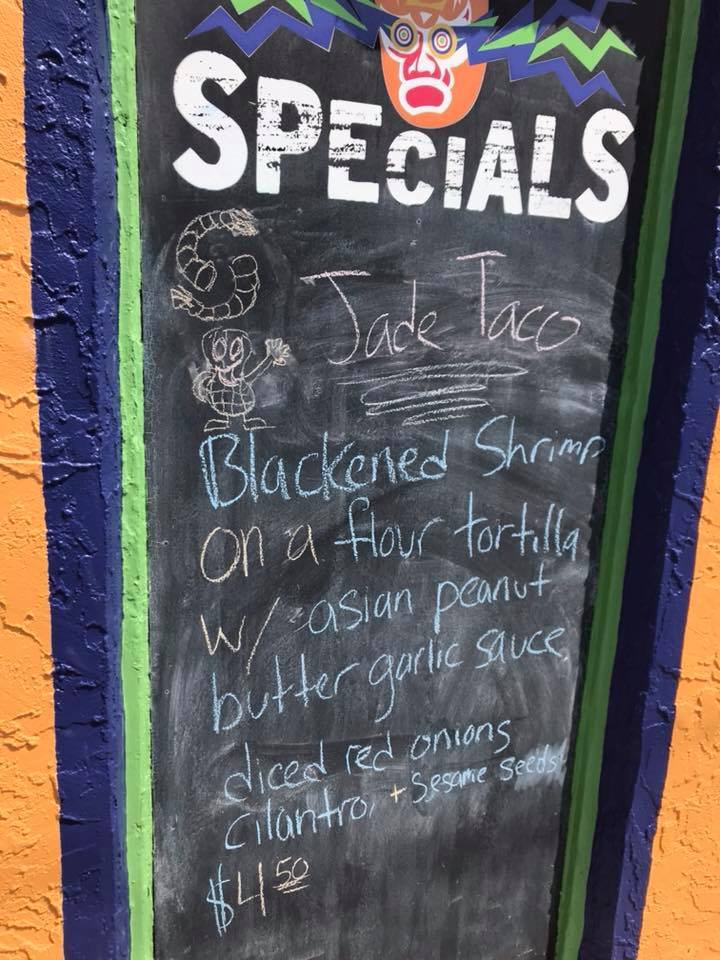 SPECIALS
Jade Taco
Blackened Shrimp
on a flour tortilla
w/ asian peanut
butter garlic sauce,
diced red onions
cilantro, + Sesame seeds!
$4.50